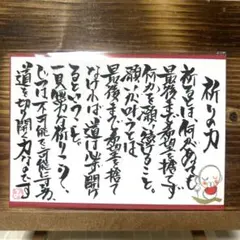 祈りの力
祈るとは、何があっても
最後まで希望を捨てず
何かを願い続ること。
願いが叶うまでは
最後まで希望を捨て
なければ道は必ず開け
るということ。
一見無力な祈りこそ、
じつは不可能を可能にする、
道を切り開く力なのです